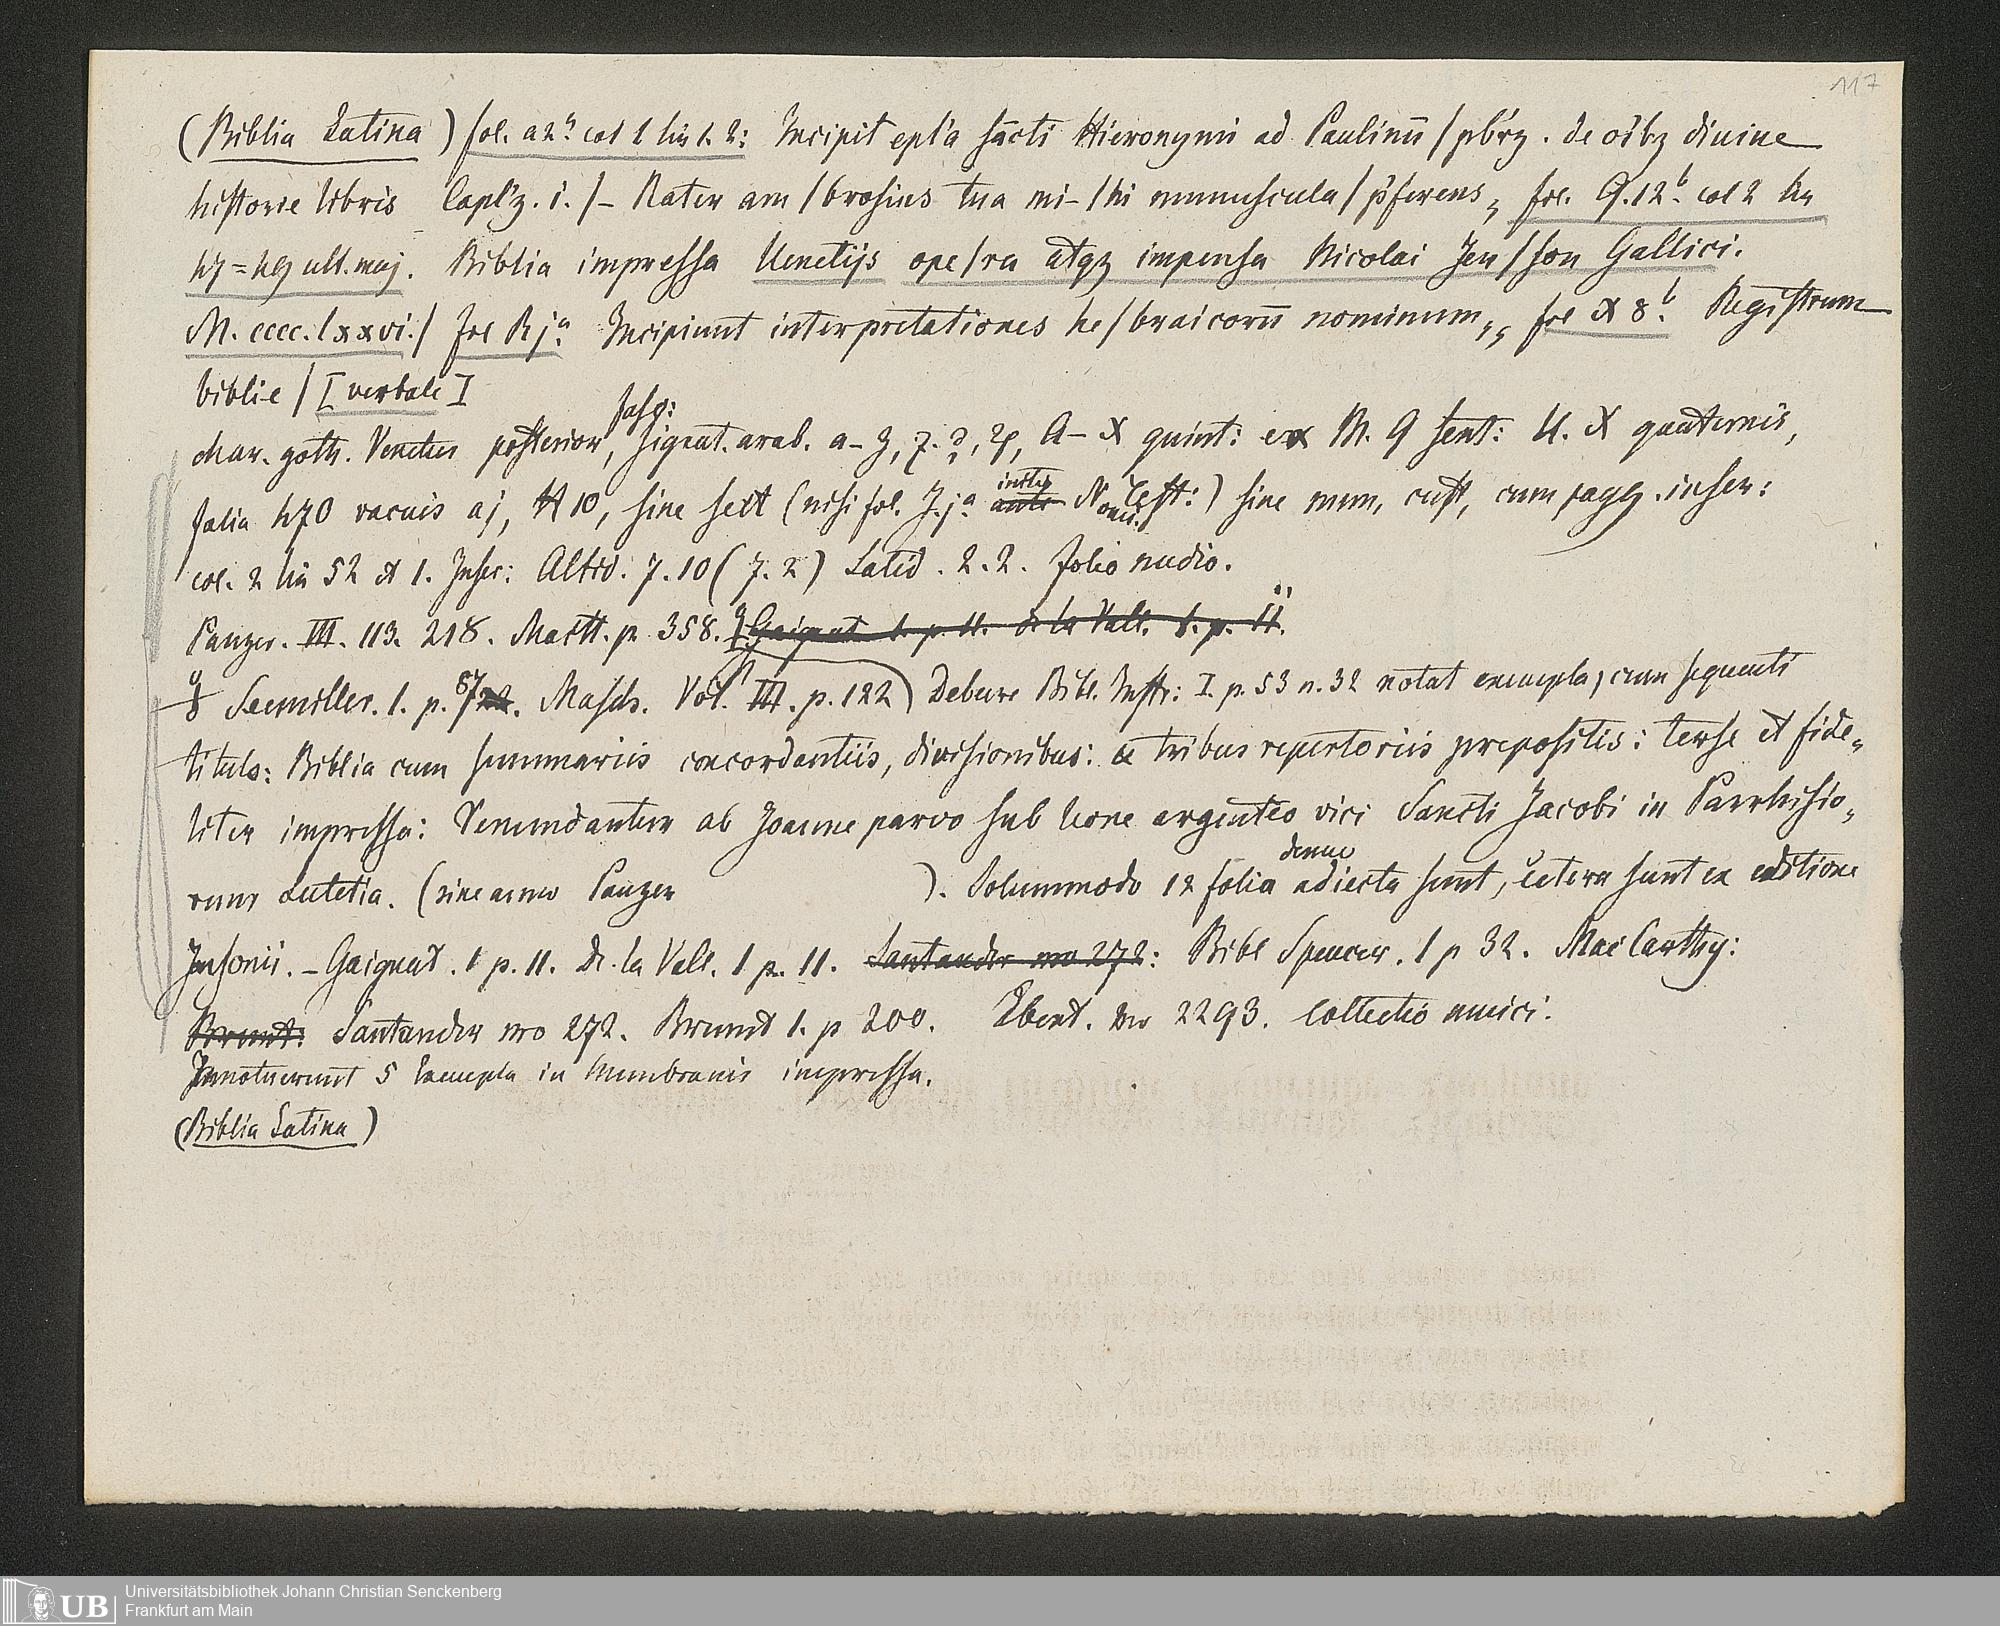 117
(Biblia Latina) fol. a2ª col 1 lin 1. 2: Incipit epl'a sācti Hieronymi ad Paulinū / pb'rz. de oībz diuine
historie libris Capl'z. i. /– Rater am / brosius tua mi– / hi munuscula / p'ferens, fol. Q. 12ᵇ. col 2 lin
47=49 ult. maj. Biblia impressa Uenetijs ope / ra atqz impensa Nicolai Jen / son Gallici.
M. cccc. lxxvi. / fol R jª Incipiunt interpretationes he / braicorū nominum,, fol X 8ᵇ. Registrum
biblie / [verbale]
fasc:
char. goth. Venetus posterior, signat. arab. a–z, A–X quint: ex M. Q sext: U. X quaternis,
folia 470 vacuis aj, 10, sine sext (nisi fol. J. jª initio ante Noui Test:) sine num, cust, cum pagg. inscr:
col. 2 lin 52 et 1. Inscr: Altid. 7. 10 (7. 2) Latid. 2. 2. folio medio.
Panzer. III. 113. 218. Maitt. p. 358. Gaignat 1. p. 11. de la Vall. 1. p. 11.
Seemiller. 1. p. Masch. Vol. III. p. 122) Debure Bibl. Instr: I. p. 53 n. 32 notat exempla, cum sequenti
titulo: Biblia cum summariis concordantiis, divisionibus: & tribus repertoriis prepositis: terse et fide„
liter impressa: Venundantur ab Joanne parvo sub leone argenteo vici Sancti Jacobi in Parrhisio„
denuo
rum Lutetia. (sine anno Panzer ). Solummodo 12 folia adiecta sunt, cetera sunt ex editione
Jensonii. – Gaignat. 1 p. 11. De la Vall. 1 p. 11. Santander no 272: Bibl Spencer. 1 p 32. Mac Carthy:
Brunet: Santander no 272. Brunet 1. p 200. Ebert. no 2293. Collectio amici.
Innotuerunt 5 Exempla in Membranis impressa.
(Biblia Latina)
UB
Universitätsbibliothek Johann Christian Senckenberg
Frankfurt am Main